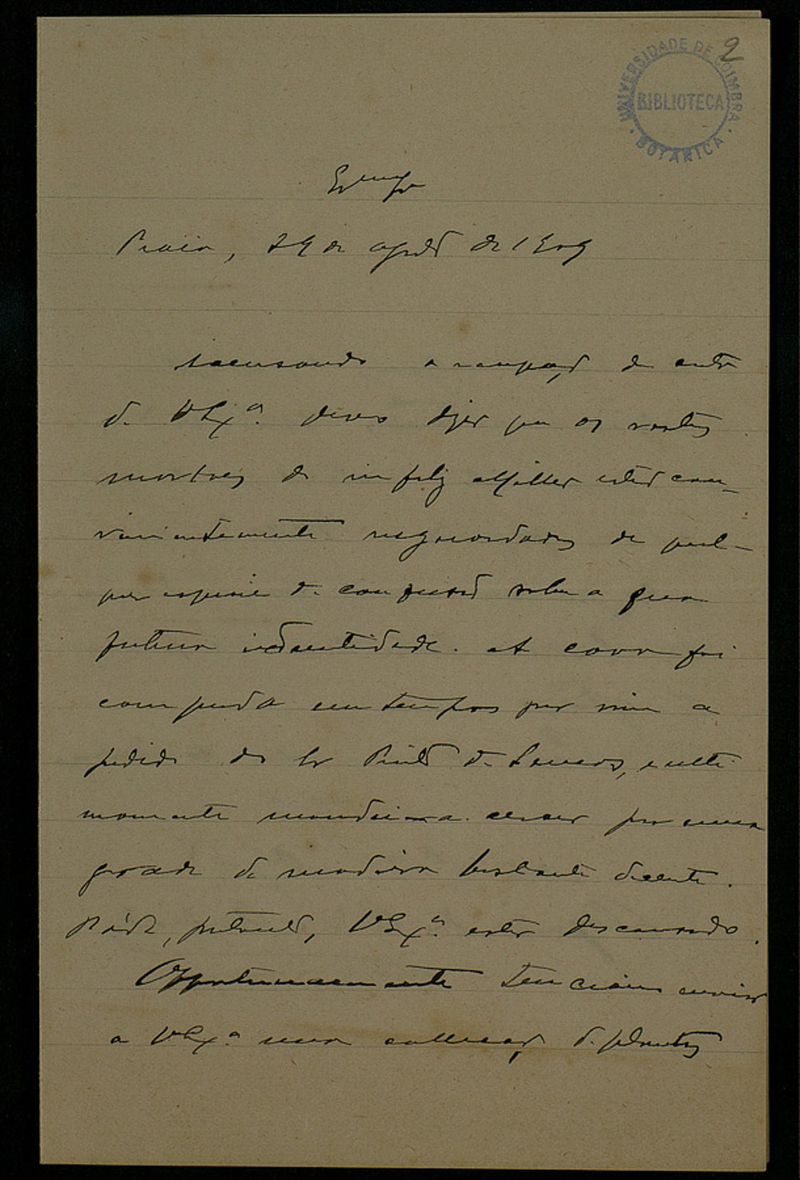 2
UNIVERSIDADE DE COIMBRA
BIBLIOTECA
BOTANICA
Praia, 29 de de 1909
Accusando a recepção da carta
de VExª. devo dizer que os restos
mortaes do infeliz estão con-
venientemente resguardados de qual-
quer especie de confusão sobre a sua
futura identidade. A cova foi
comprada em tempos por mim a
pedido do Sr de Lemos, e ulti
mamente mandei-a cercar por uma
grade de madeira bastante decente.
Póde, portanto, VExª. estar descansado.
Opportunamente tenciono enviar
a VExª uma collecção de plantas